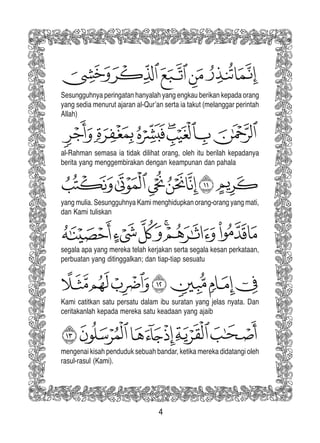 إِنَّمَا تُنذِرُ مَنِ ٱتَّبَعَ ٱلذِّكْرَ وَخَشِىَ
Sesungguhnya peringatan hanyalah yang engkau berikan kepada orang
yang sedia menurut ajaran al-Qur’an serta ia takut (melanggar perintah
Allah)
ٱلرَّحْمَٰنَ بِٱلْغَيْبِ ۖ فَبَشِّرْهُ بِمَغْفِرَةٍ وَأَجْرٍ
al-Rahman semasa ia tidak dilihat orang, oleh itu berilah kepadanya
berita yang menggembirakan dengan keampunan dan pahala
كَرِيمٍ ١١ إِنَّا نَحْنُ نُحْىِ ٱلْمَوْتَىٰ وَنَكْتُبُ
yang mulia. Sesungguhnya Kami menghidupkan orang-orang yang mati,
dan Kami tuliskan
مَا قَدَّمُوا۟ وَءَاثَٰرَهُمْ ۚ وَكُلَّ شَىْءٍ أَحْصَيْنَٰهُ
segala apa yang mereka telah kerjakan serta segala kesan perkataan,
perbuatan yang ditinggalkan; dan tiap-tiap sesuatu
فِىٓ إِمَامٍ مُّبِينٍ ١٢ وَٱضْرِبْ لَهُم مَّثَلًا
Kami catitkan satu persatu dalam ibu suratan yang jelas nyata. Dan
ceritakanlah kepada mereka satu keadaan yang ajaib
أَصْحَٰبَ ٱلْقَرْيَةِ إِذْ جَآءَهَا ٱلْمُرْسَلُونَ ١٣
mengenai kisah penduduk sebuah bandar, ketika mereka didatangi oleh
rasul-rasul (Kami).
4